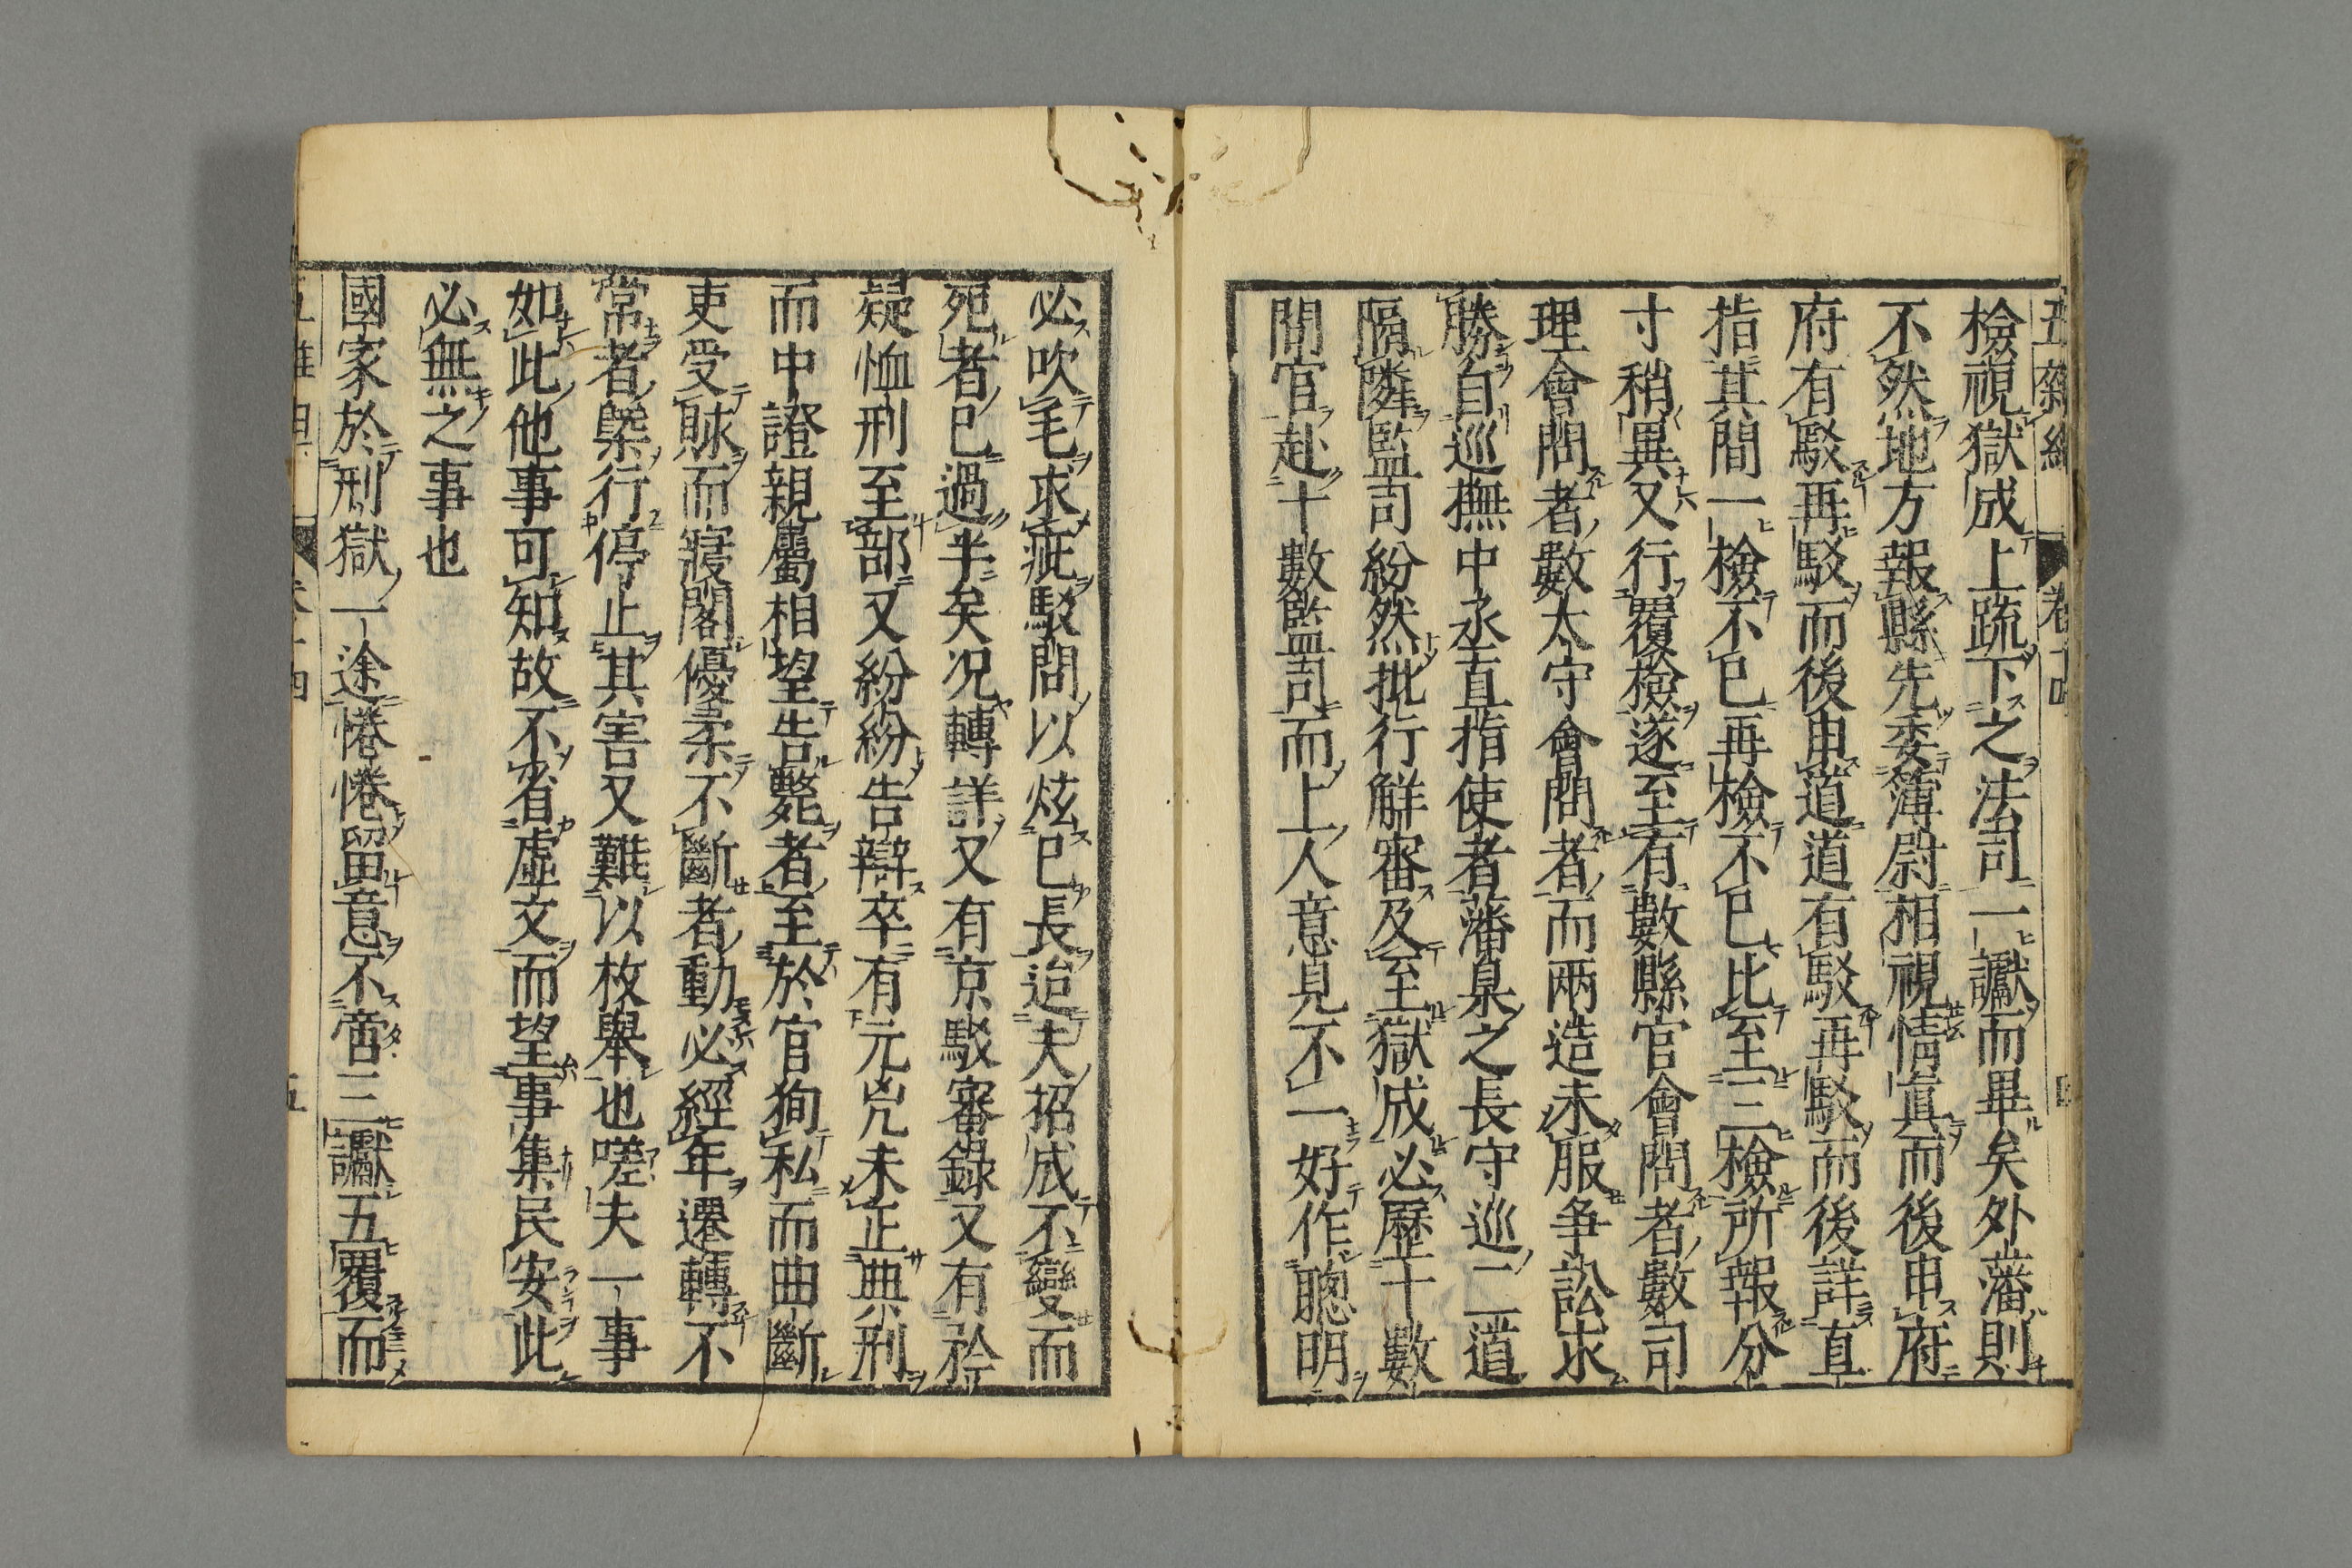 檢視獄成上疏下之法司一讞而畢矣外藩則
不然地方報縣先委簿尉相視情眞而後申府
府有駁再駁而後申道道有駁再駁而後詳直
指其間一檢不已再檢不已比至三檢所報分
寸稍異又行覆檢遂至有數縣官會問者數司
理會問者數太守會問者而兩造未服爭訟求
勝自巡撫中丞直指使者藩臬之長守巡二道
隔隣監司紛然批行觧審及至獄成必歷十數
問官赴十數監司而上人意見不一好作聰明
必吹毛求疵駁問以炫已長迨夫招成不變而
死者已過半矣况轉詳又有京駁審錄又有矜
疑恤刑至部又紛紛告辯卒有元兇未正典刑
而中證親屬相望告斃者至於官狥私而曲斷
吏受賕而寢閣優柔不斷者動必經年遷轉不
常者槩行停止其害又難以枚舉也嗟夫一事
如此他事可知故不省虛文而望事集民安此
必無之事也
國家於刑獄一途惓惓留意不啻三讞五覆而